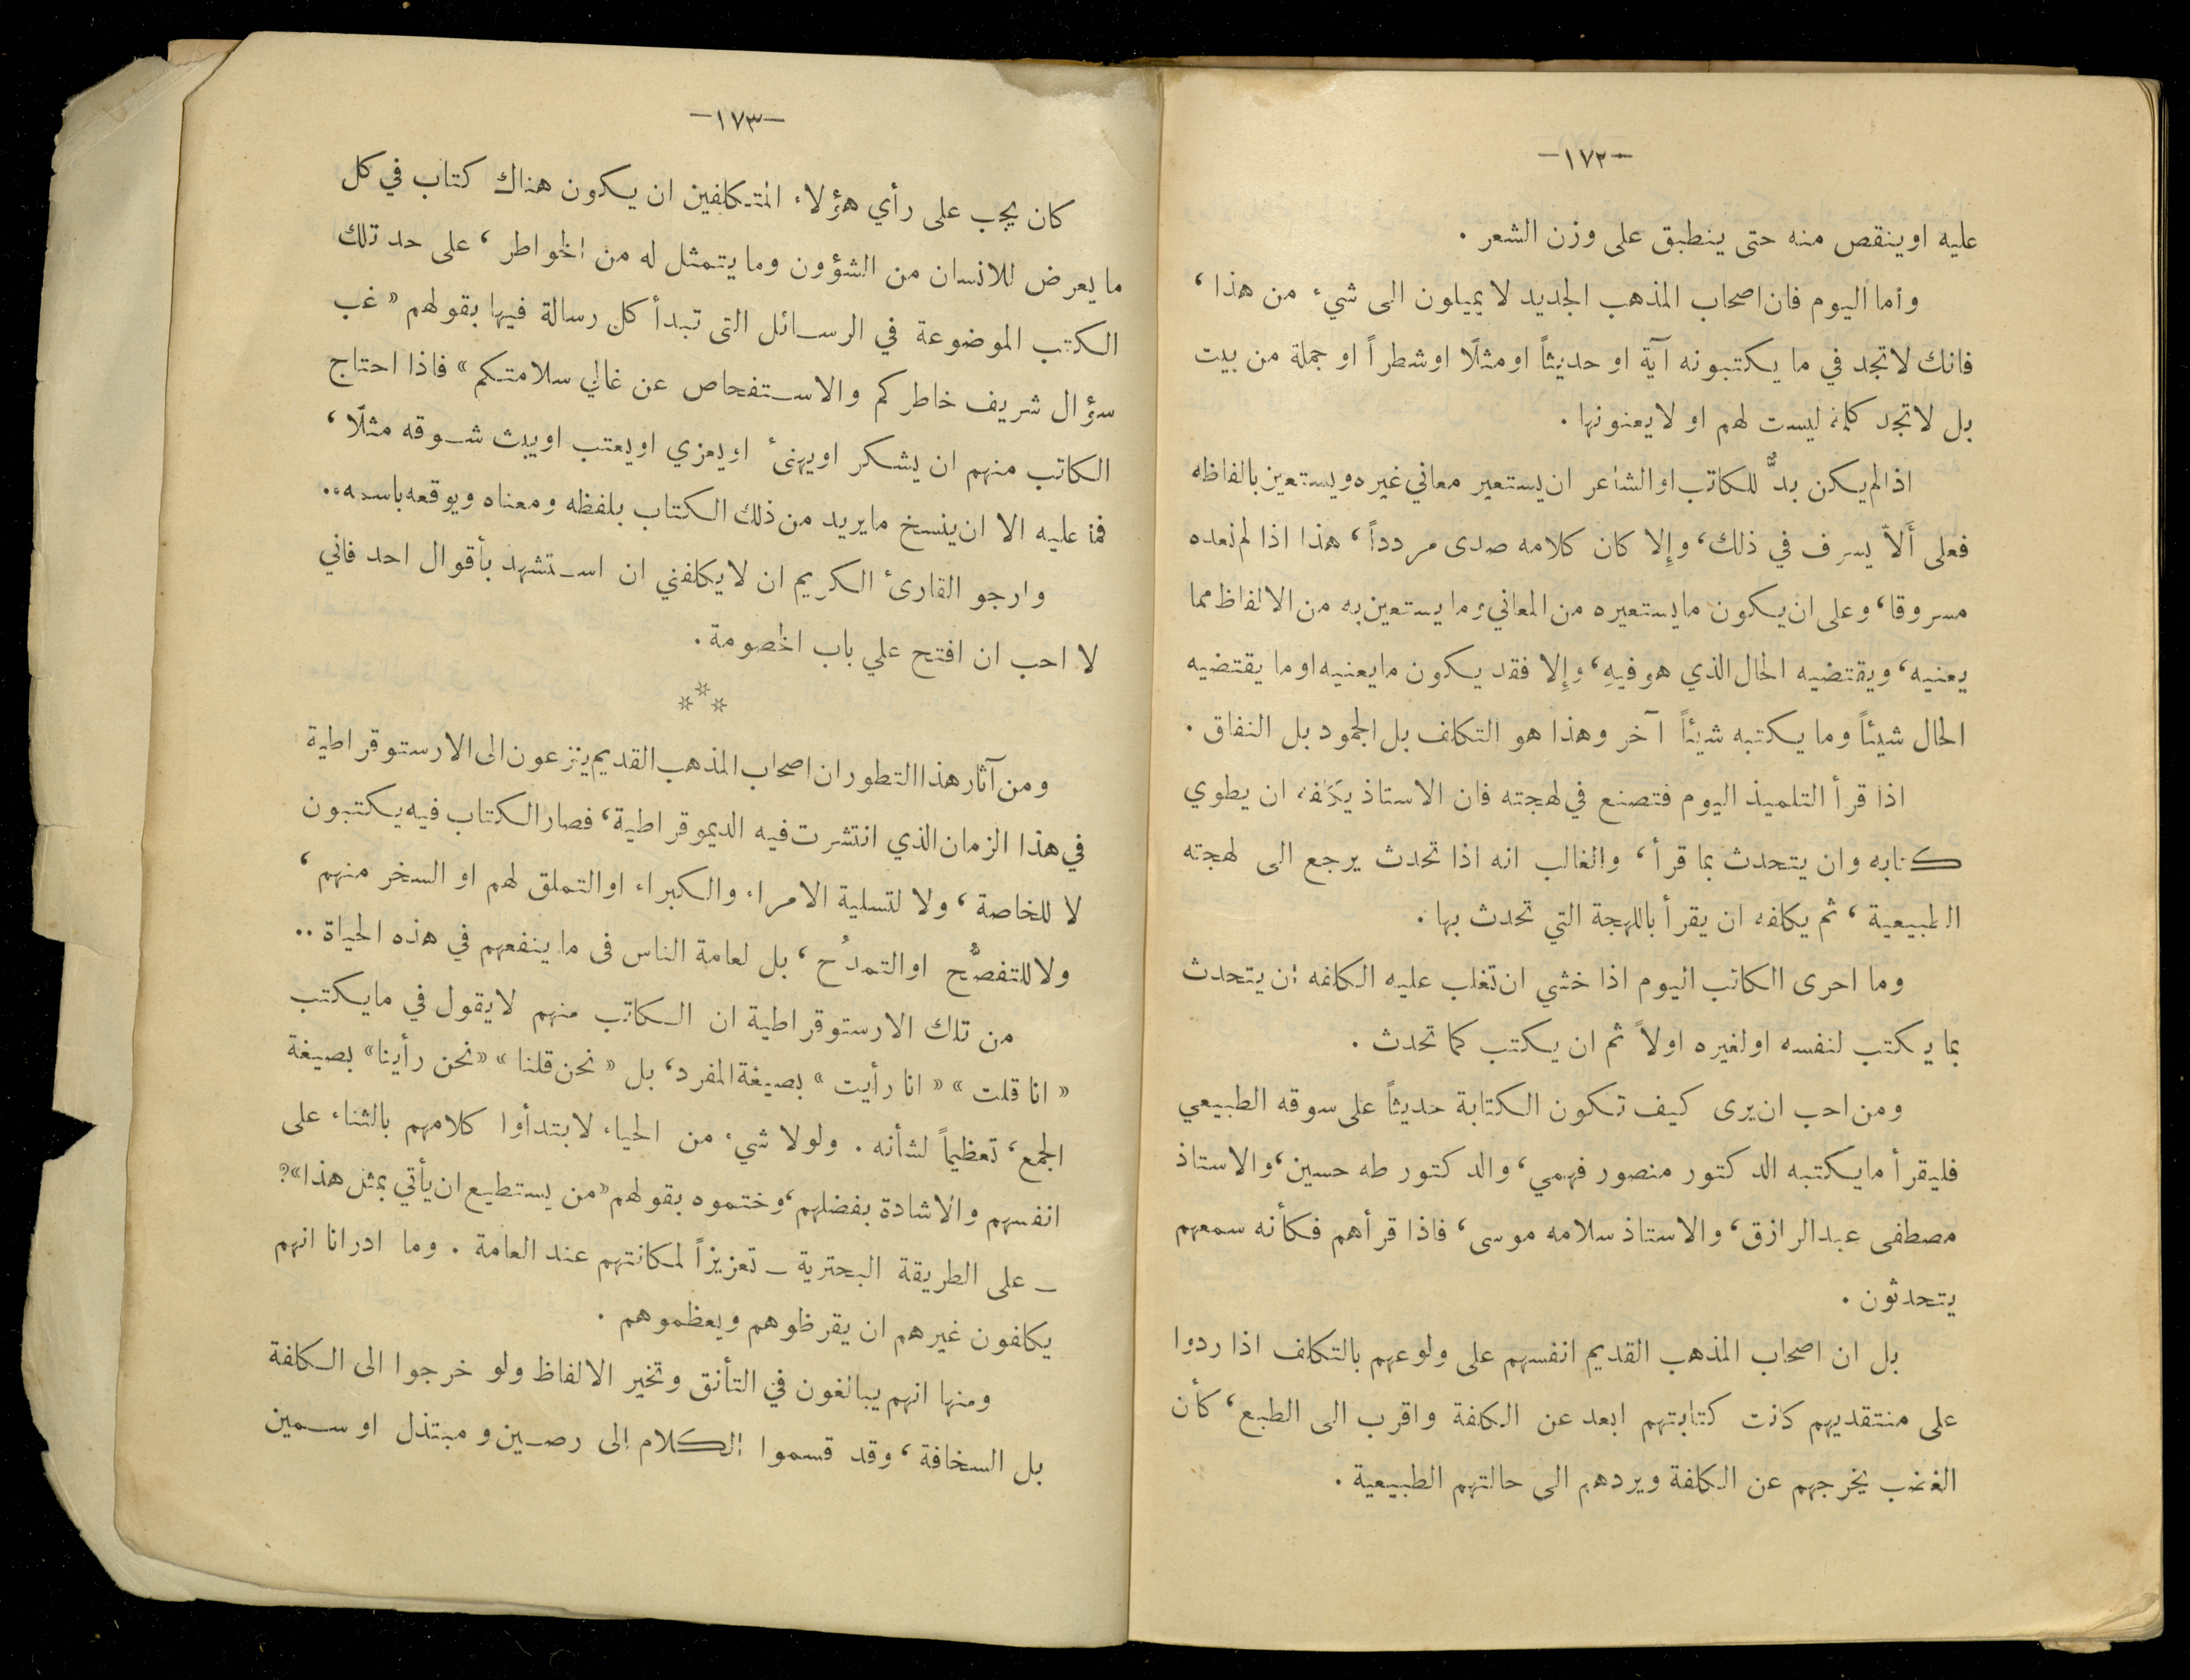 -١٧٢-
عليه اوينقص منه حتى ينطبق على وزن الشعر .
واما اليوم فان اصحاب المذهب الجديد لا يميلون الى شيء من هذا ،
فانك لاتجد في ما يكتبونه آية او حديثاً اومثلًا اوشطراً او جملة من بيت
بل لاتجد كلمة ليست لهم او لايعنونها .
اذالم يكن بدٌّ للكاتب اوالشاعر ان يستعير معاني غيره ويستعين بالفاظه
فعلى أَلاّ يسرف في ذلك، وإِلا كان كلامه صدى مردداً ، هذا اذا لم نعده
مسروقا، وعلى ان يكون مايستعيره من المعاني وما يستعين به من الالفاظ مما
يعنيه، ويقتضيه الحال الذي هو فيهِ، وإِلا فقد يكون مايعنيه اوما يقتضيه
الحال شيئاً وما يكتبه شيئاً آخر وهذا هو التكلف بل الجمود بل النفاق .
اذا قرأ التلميذ اليوم فتصنع في لهجته فان الاستاذ يكلفه ان يطوي
كتابه وان يتحدث بما قرأ ، والغالب انه اذا تحدث يرجع الى لهجته
الطبيعية ، ثم يكلفه ان يقرأ باللهجة التي تحدث بها .
وما احرى الكاتب اليوم اذا خشي ان تغلب عليه الكلفه ان يتحدث
بما يكتب لنفسه اولغيره اولاً ثم ان يكتب كما تحدث .
ومن احب ان يرى كيف تكون الكتابة حديثاً على سوقه الطبيعي
فليقرأ مايكتبه الدكتور منصور فهمي، والدكتور طه حسين، والاستاذ
مصطفى عبدالرازق، والاستاذ سلامه موسى، فاذا قرأهم فكأنه سمعهم
يتحدثون .
بل ان اصحاب المذهب القديم انفسهم على ولوعهم بالتكلف اذا ردوا
على منتقديهم كانت كتابتهم ابعد عن الكلفة واقرب الى الطبع ، كأن
الغضب يخرجهم عن الكلفة ويردهم الى حالتهم الطبيعية .
-١٧٣-
كان يجب على رأي هؤلاء المتكلفين ان يكون هناك كتاب في كل
ما يعرض للانسان من الشؤون وما يتمثل له من الخواطر ، على حد تلك
الكتب الموضوعة في الرسائل التى تبدأ كل رسالة فيها بقولهم « غب
سؤال شريف خاطركم والاستفحاص عن غالي سلامتكم » فاذا احتاج
الكاتب منهم ان يشكر اويهنئ اويعزي اويعتب اويبث شوقه مثلًا ،
فما عليه الا ان ينسخ مايريد من ذلك الكتاب بلفظه ومعناه ويوقعه باسمه..
وارجو القارئ الكريم ان لايكلفني ان استشهد بأقوال احد فاني
لا احب ان افتح علي باب الخصومة .
***
ومن آثار هذا التطور ان اصحاب المذهب القديم ينزعون الى الارستوقراطية
في هذا الزمان الذي انتشرت فيه الديموقراطية ، فصار الكتاب فيه يكتبون
لا للخاصة ، ولا لتسلية الامراء والكبراء اوالتملق لهم او السخر منهم ،
ولا للتفصُّح اوالتمدُح ، بل لعامة الناس فى ما ينفعهم في هذه الحياة ..
من تلك الارستوقراطية ان الكاتب منهم لايقول في مايكتب
« انا قلت » « انا رأيت » بصيغة المفرد، بل « نحن قلنا » «نحن رأينا» بصيغة
الجمع ، تعظيماً لشأنه . ولولا شيء من الحياء لابتدأوا كلامهم بالثناء على
انفسهم والاشادة بفضلهم ، وختموه بقولهم «من يستطيع ان يأتي بمثل هذا»؟
_ على الطريقة البحترية _ تعزيزاً لمكانتهم عند العامة . وما ادرانا انهم
يكلفون غيرهم ان يقرظوهم ويعظموهم .
ومنها انهم يبالغون في التأنق وتخير الالفاظ ولو خرجوا الى الكلفة
بل السخافة ، وقد قسموا الكلام إلى رصين ومبتذل او سمين